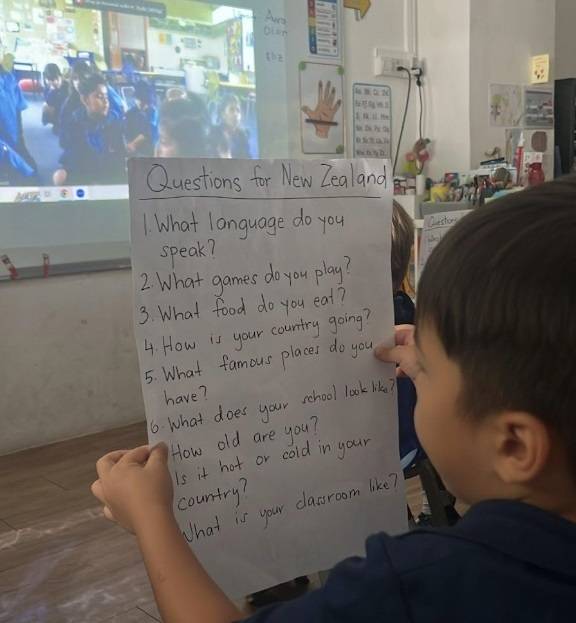 Questions for New Zealand
1. What language do you
speak?
2. What games do you play?
3. What food do you eat?
4. How is your country going?
5. What famous places do you
have?
6. What does your school look like?
How old are you?
Is it hot or cold in your
country?
What is your classroom like?